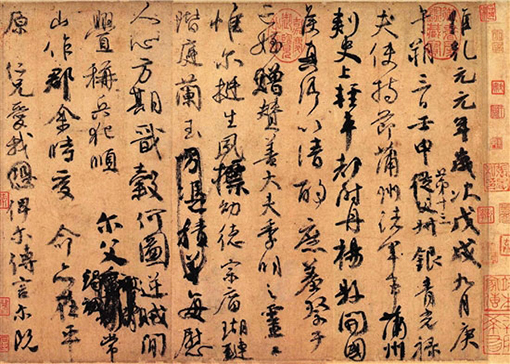 維乾元元年歲次戊戌九月庚
午朔三日壬申第十三從父叔銀青光祿
夫使持節蒲州諸軍事蒲州
刺史上輕車都尉丹楊縣開國
侯真卿以清酌庶羞祭于
亡姪贈贊善大夫季明之靈
惟爾挺生夙標幼德宗廟瑚璉
階庭蘭玉方憑積善每慰
人心方期戩穀何圖逆賊開
釁稱兵犯順爾父竭誠常
山作郡余時受命亦在平
原仁兄愛我俾爾傳言爾既